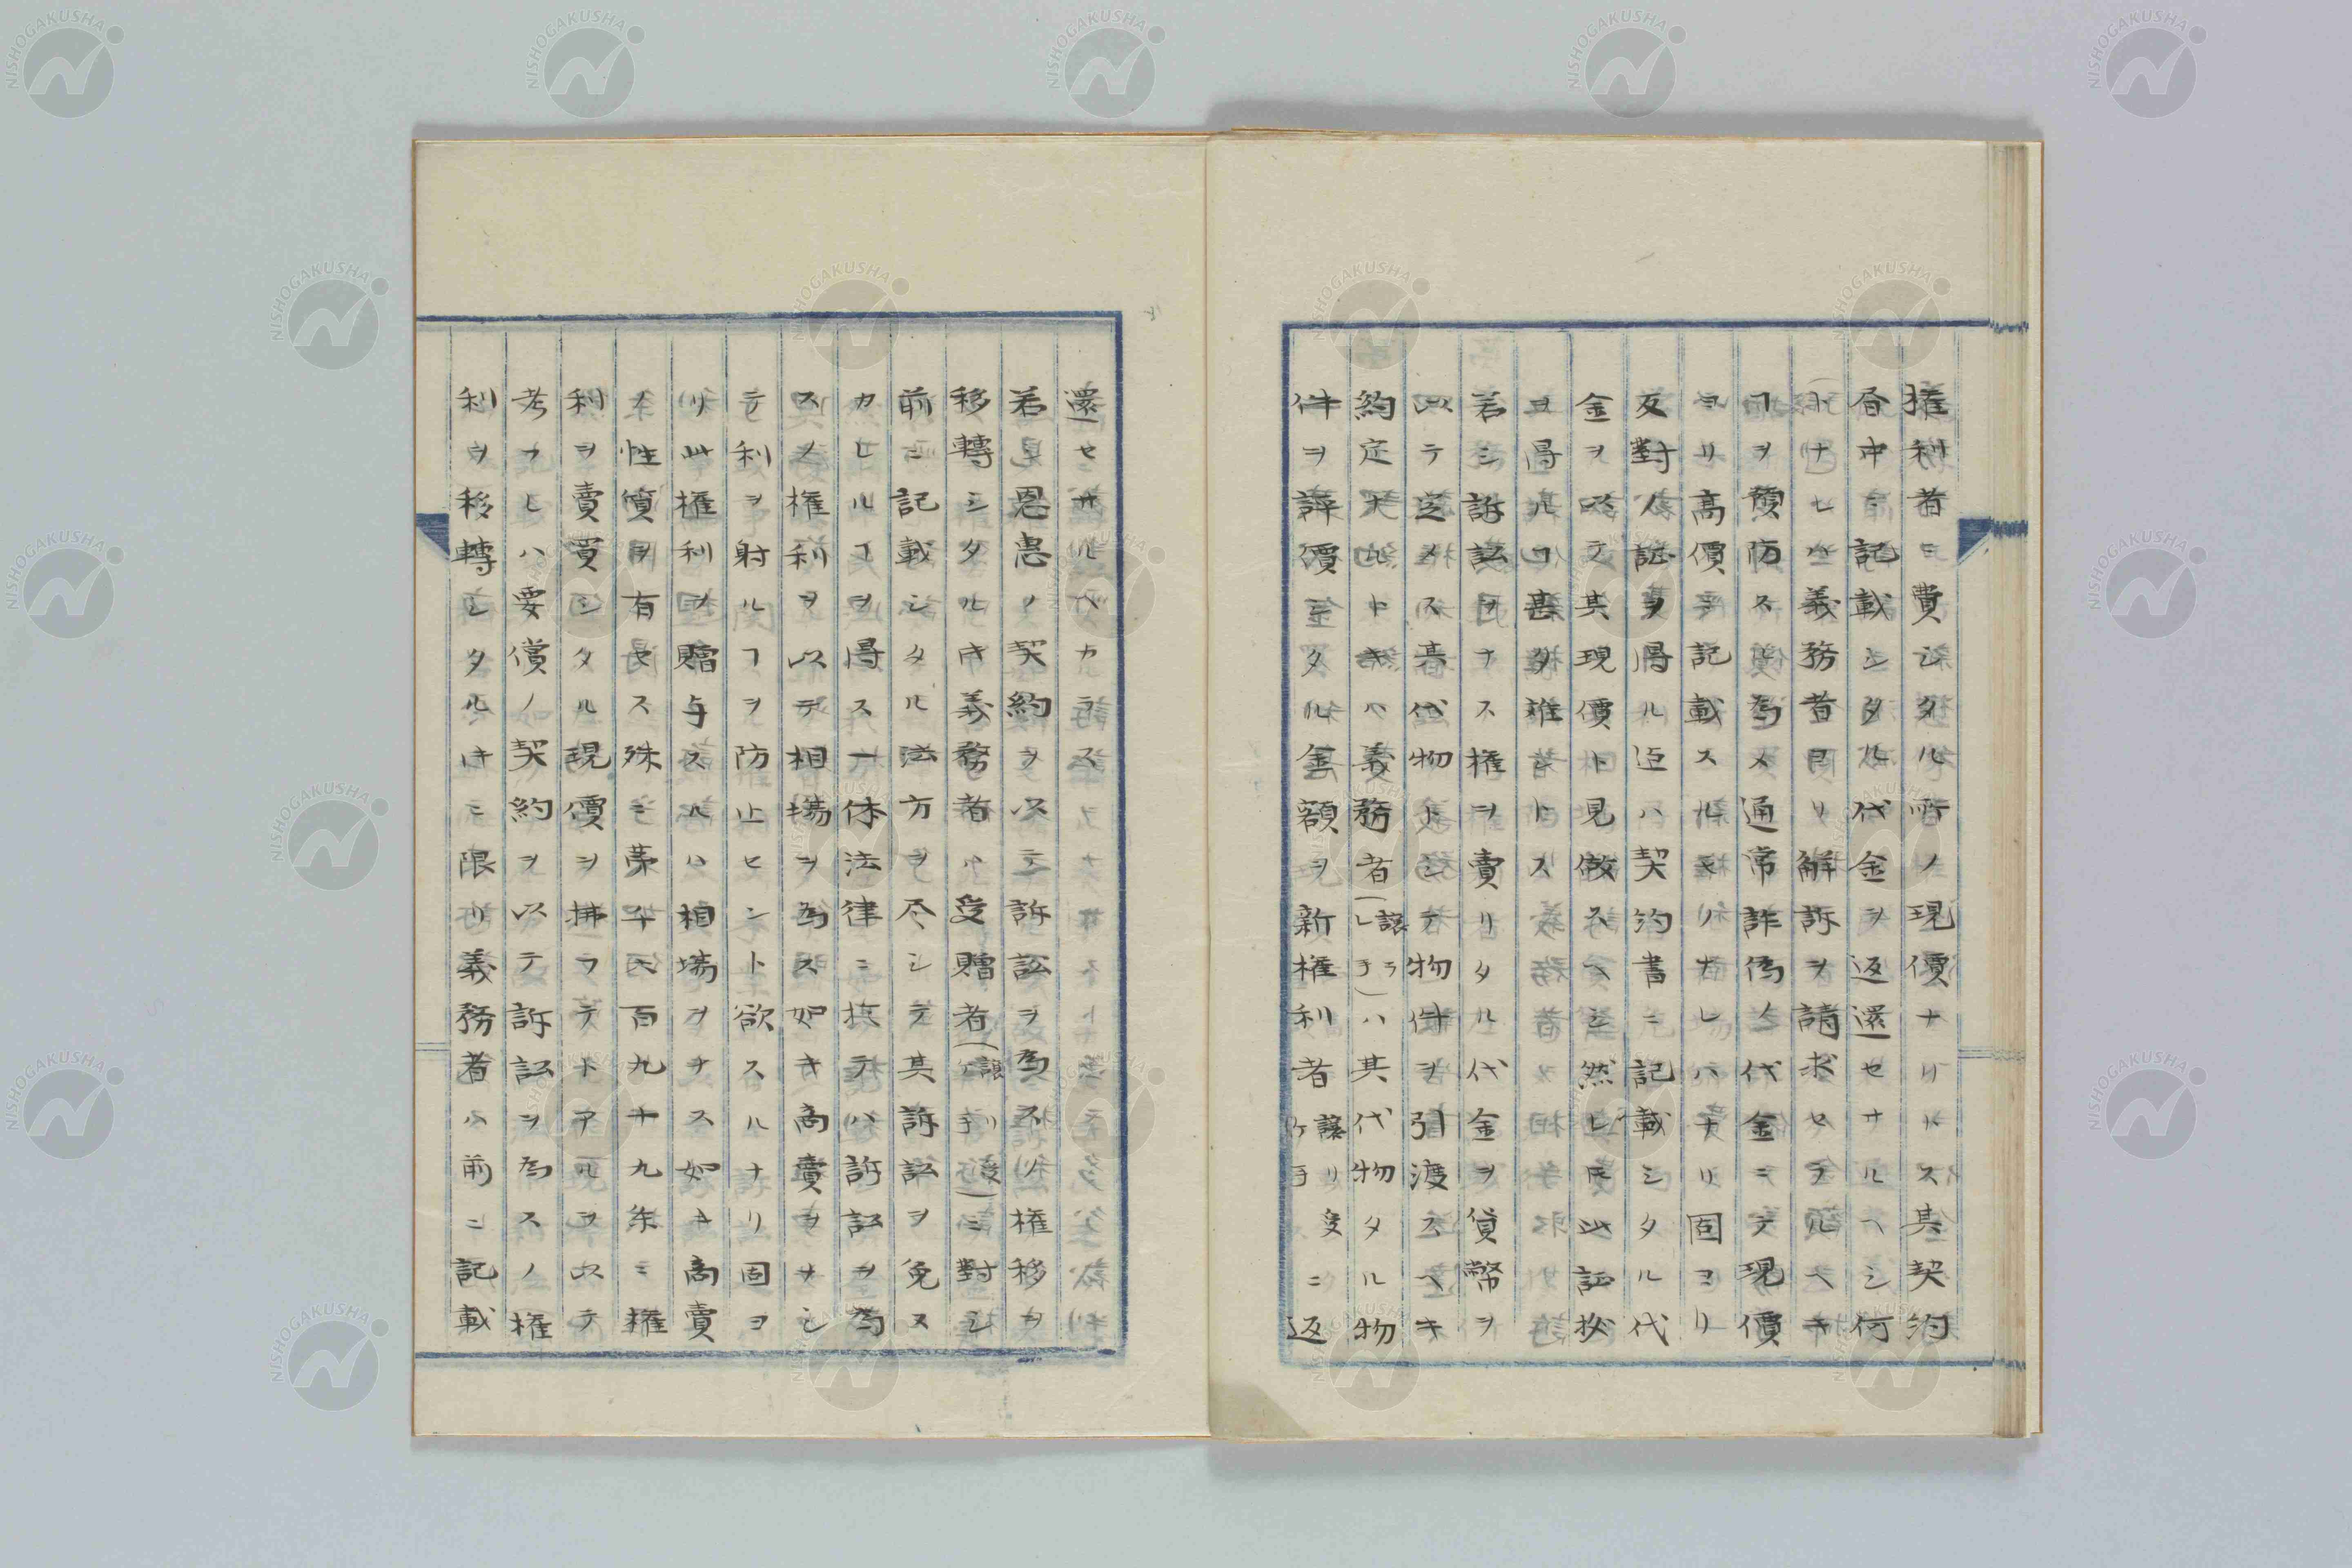 権利者ニ費シタル所ノ現價ナリトス其契約
書中ニ記載シタル代金ヲ返還セサルヘシ何
トナレハ義務者ヨリ解訴ヲ請求セラルヘキ
ヿヲ預防スル為メ通常詐偽ノ代金ニテ現價
ヨリ高價ヲ記載スルモノナレハナリ固ヨリ
反對ノ証ヲ得ル迄ハ契約書ニ記載シタル代
金ヲ以テ其現價ト見做スヘシ然レ𪜈此証拠
ヲ得ルヿ甚タ難シトス
若シ訴訟ヲナス権ヲ賣リタル代金ヲ貸幣ヲ
以テ定メス髙代物トシテ物件ヲ引渡スヘキ
約定ナルトキハ義務者(譲ラレ手)ハ其代物タル物
件ヲ評價シタル金額ヲ新権利者譲リ受ケ手ニ返
還セサルヘカラス
若シ恩惠ノ契約ヲ以テ訴訟ヲ為スノ権移ヲ
移轉シタル片義務者ハ受贈者(譲リ受ケ手)ニ對シ
前ニ記載シタル法方ヲ尽シテ其訴訟ヲ免ス
カレルヿヲ得ス一体法律ニ於テハ訴訟ヲ為
スノ権利ヲ以テ相場ヲ為ス如キ商賣ヲナシ
テ利ヲ射ルヿヲ防止セント欲スルナリ固ヨ
リ此権利ヲ贈与スルハ相場ヲナス如キ商賣
ノ性質ヲ有セス殊ニ第千六百九十九条ニ権
利ヲ賣買シタル現價ヲ拂フテトアルヲ以テ
考フレハ要償ノ契約ヲ以テ訴訟ヲ為スノ権
利ヲ移轉シタル片ニ限リ義務者ハ前ニ記載